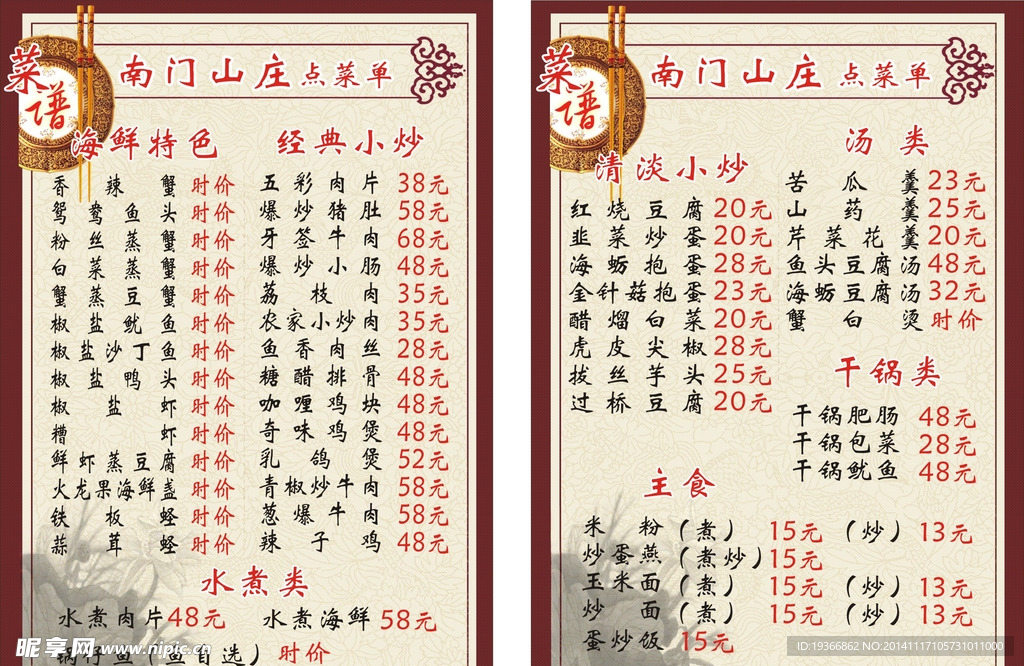 菜谱
南门山庄点菜单
海鲜特色
香辣蟹 时价
鸳鸯鱼头 时价
粉丝蒸蟹 时价
白菜蒸蟹 时价
蟹蒸豆蟹 时价
椒盐鱿鱼 时价
椒盐沙丁鱼 时价
椒盐鸭头 时价
椒盐虾 时价
糟虾 时价
鲜虾蒸豆腐 时价
火龙果海鲜盏 时价
铁板蛏 时价
蒜茸蛏 时价
经典小炒
五彩肉片 38元
爆炒猪肚 58元
牙签牛肉 68元
爆炒小肠 48元
荔枝肉 35元
农家小炒肉 35元
鱼香肉丝 28元
糖醋排骨 48元
咖喱鸡块 48元
奇味鸡煲 48元
乳鸽煲 52元
青椒炒牛肉 58元
葱爆牛肉 58元
辣子鸡 48元
水煮类
水煮肉片 48元 水煮海鲜 58元
锅仔鱼（鱼自选） 时价
昵享网 www.nipic.cn
菜谱
南门山庄点菜单
清淡小炒
红烧豆腐 20元
韭菜炒蛋 20元
海蛎抱蛋 28元
金针菇抱蛋 23元
醋熘白菜 20元
虎皮尖椒 28元
拔丝芋头 25元
过桥豆腐 20元
汤类
苦瓜羹 23元
山药羹 25元
芹菜花羹 20元
鱼头豆腐汤 48元
海蛎豆腐汤 32元
蟹白烫 时价
干锅类
干锅肥肠 48元
干锅包菜 28元
干锅鱿鱼 48元
主食
米粉（煮） 15元 （炒） 13元
炒蛋燕（煮炒） 15元
玉米面（煮） 15元 （炒） 13元
炒面（煮） 15元 （炒） 13元
蛋炒饭 15元
ID:19366862 NO:20141117105731011000